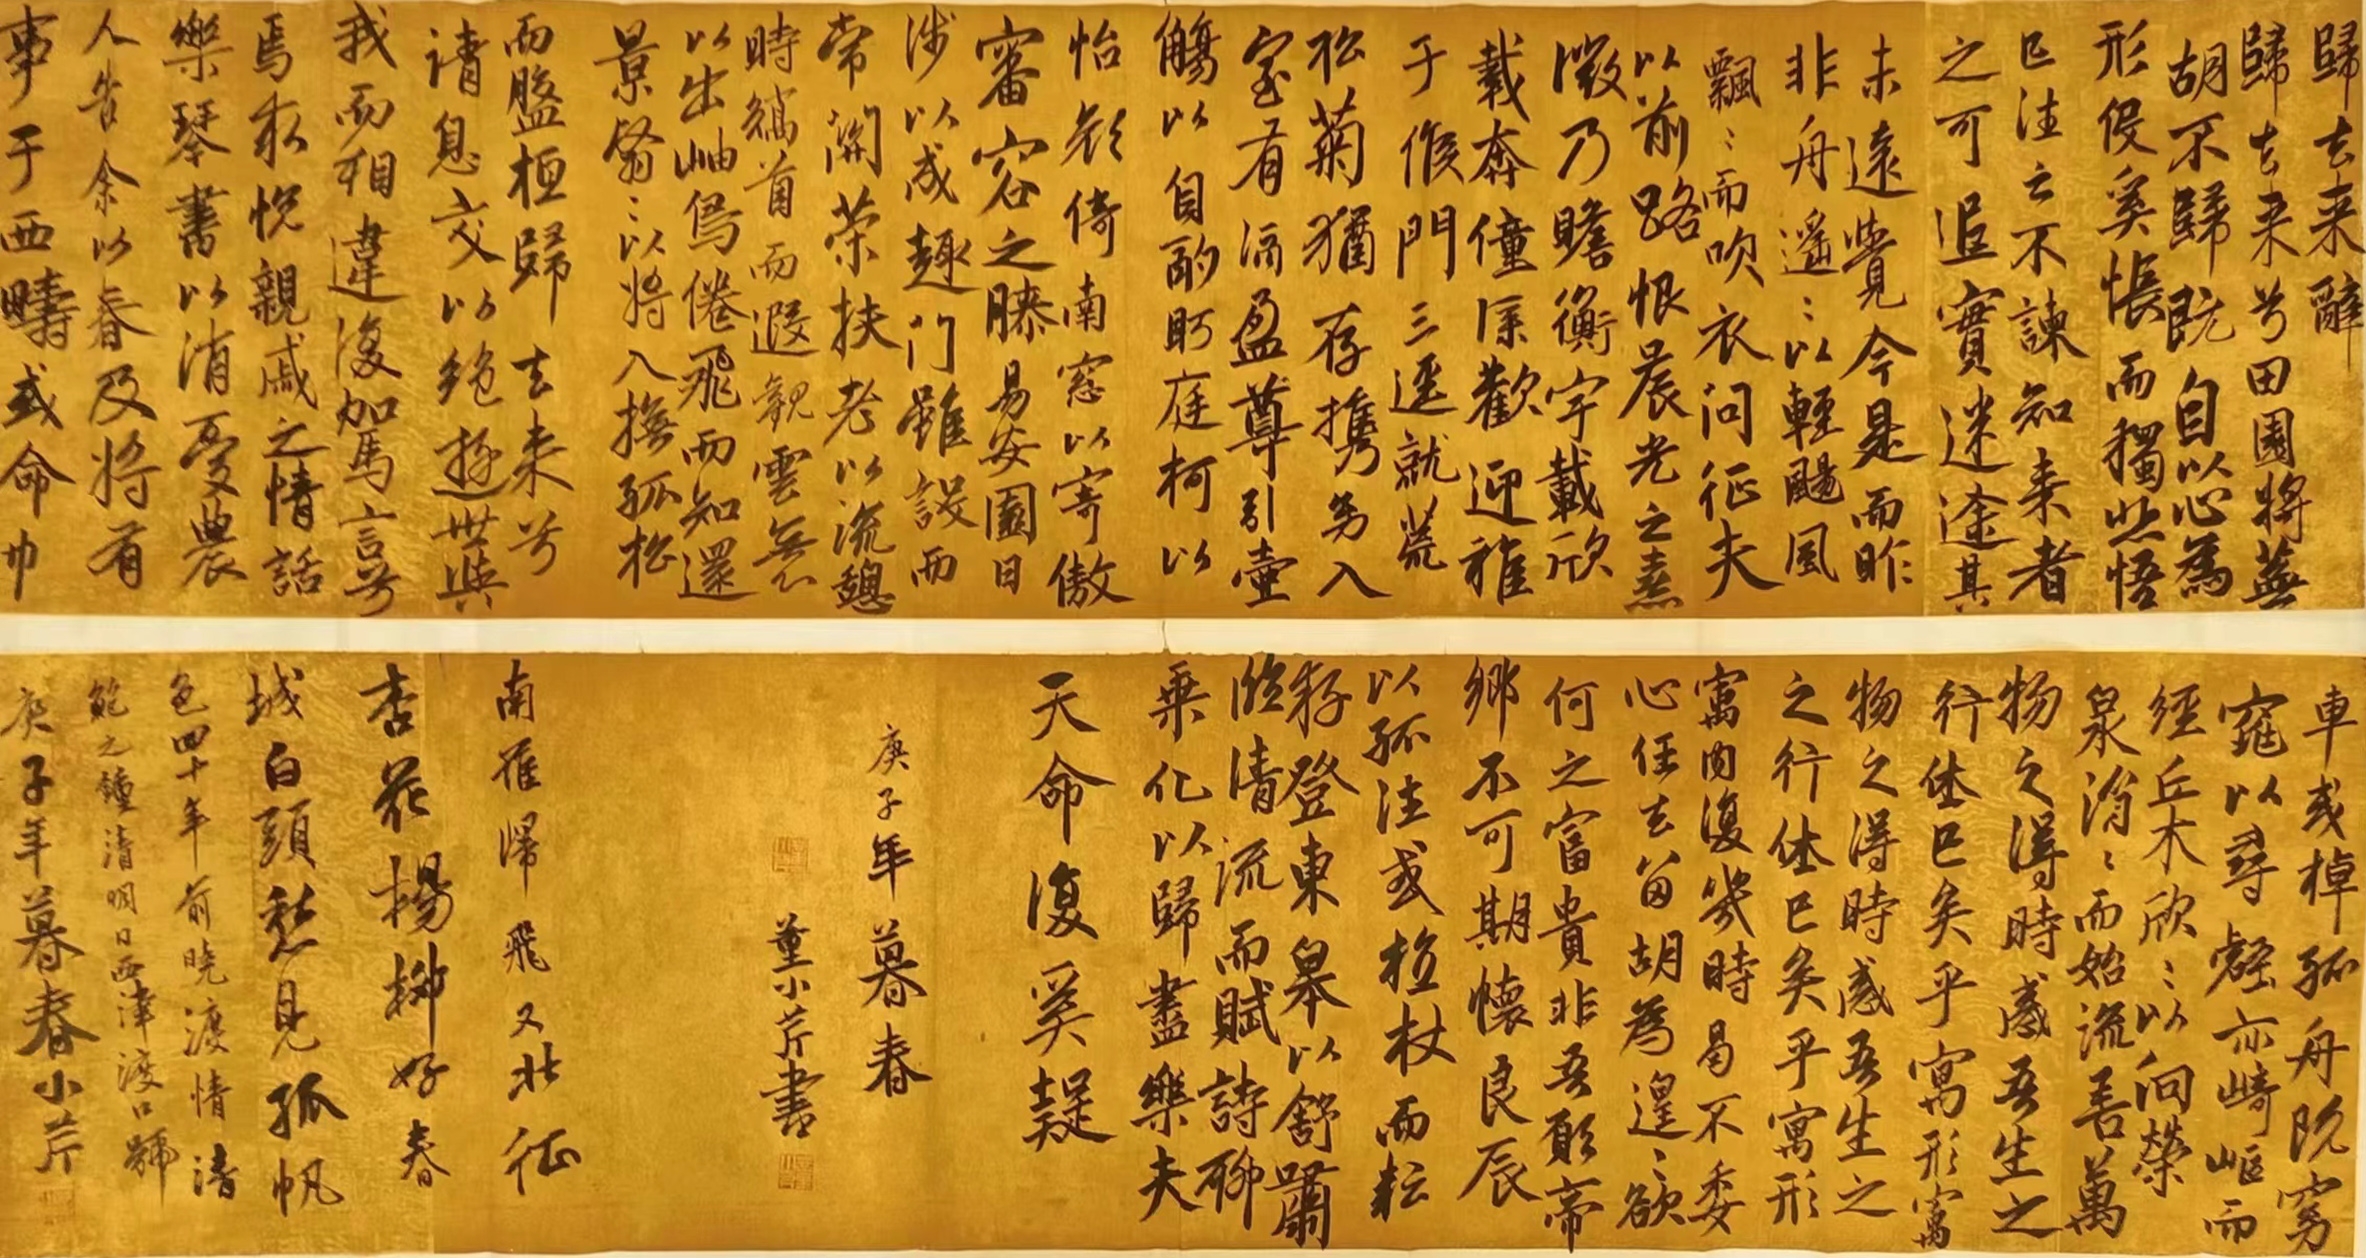 歸去来辭
歸去来兮田園將蕪
胡不歸既自以心為
形役奚悵而獨悲悟
已往之不諫知来者
之可追實迷途其
未遠覺今是而昨
非舟遥〻以輕颺風
飄〻而吹衣问征夫
以前路恨晨光之熹
微乃瞻衡宇載欣
載奔僮僕歡迎稚
子候門三逕就荒
松菊猶存攜幼入
室有酒盈尊引壺
觴以自酌眄庭柯以
怡顔倚南窓以寄傲
審容之膝易安園日
涉以成趣门雖設而
常關策扶老以流憩
時矯首而遐觀雲無
以出岫鳥倦飛而知還
景翳〻以将入撫孤松
而盤桓歸去来兮
请息交以絶遊世與
我而相違復加駕言兮
焉求悦親戚之情話
樂琴書以消憂農
人告余以春及将有
事于西疇或命巾
車或棹孤舟既窈
窕以尋壑亦崎嶇而
經丘木欣〻以向榮
泉涓〻而始流善萬
物之得時感吾生之
行休已矣乎寓形寓
物之得時感吾生之
之行休已矣乎寓形
寓内復幾時曷不委
心任去留胡為遑〻欲
何之富貴非吾願帝
鄉不可期懷良辰
以孤往或植杖而耘
耔登東皋以舒嘯
臨清流而賦詩聊
乘化以歸盡樂夫
天命復奚疑
庚子年暮春
董小芹書
南雁歸飛又北征
杏花楊柳好春
城白頭愁見孤帆
色四十年前曉渡情 清
鮑之鐘清明日西津渡口號
庚子年暮春小芹